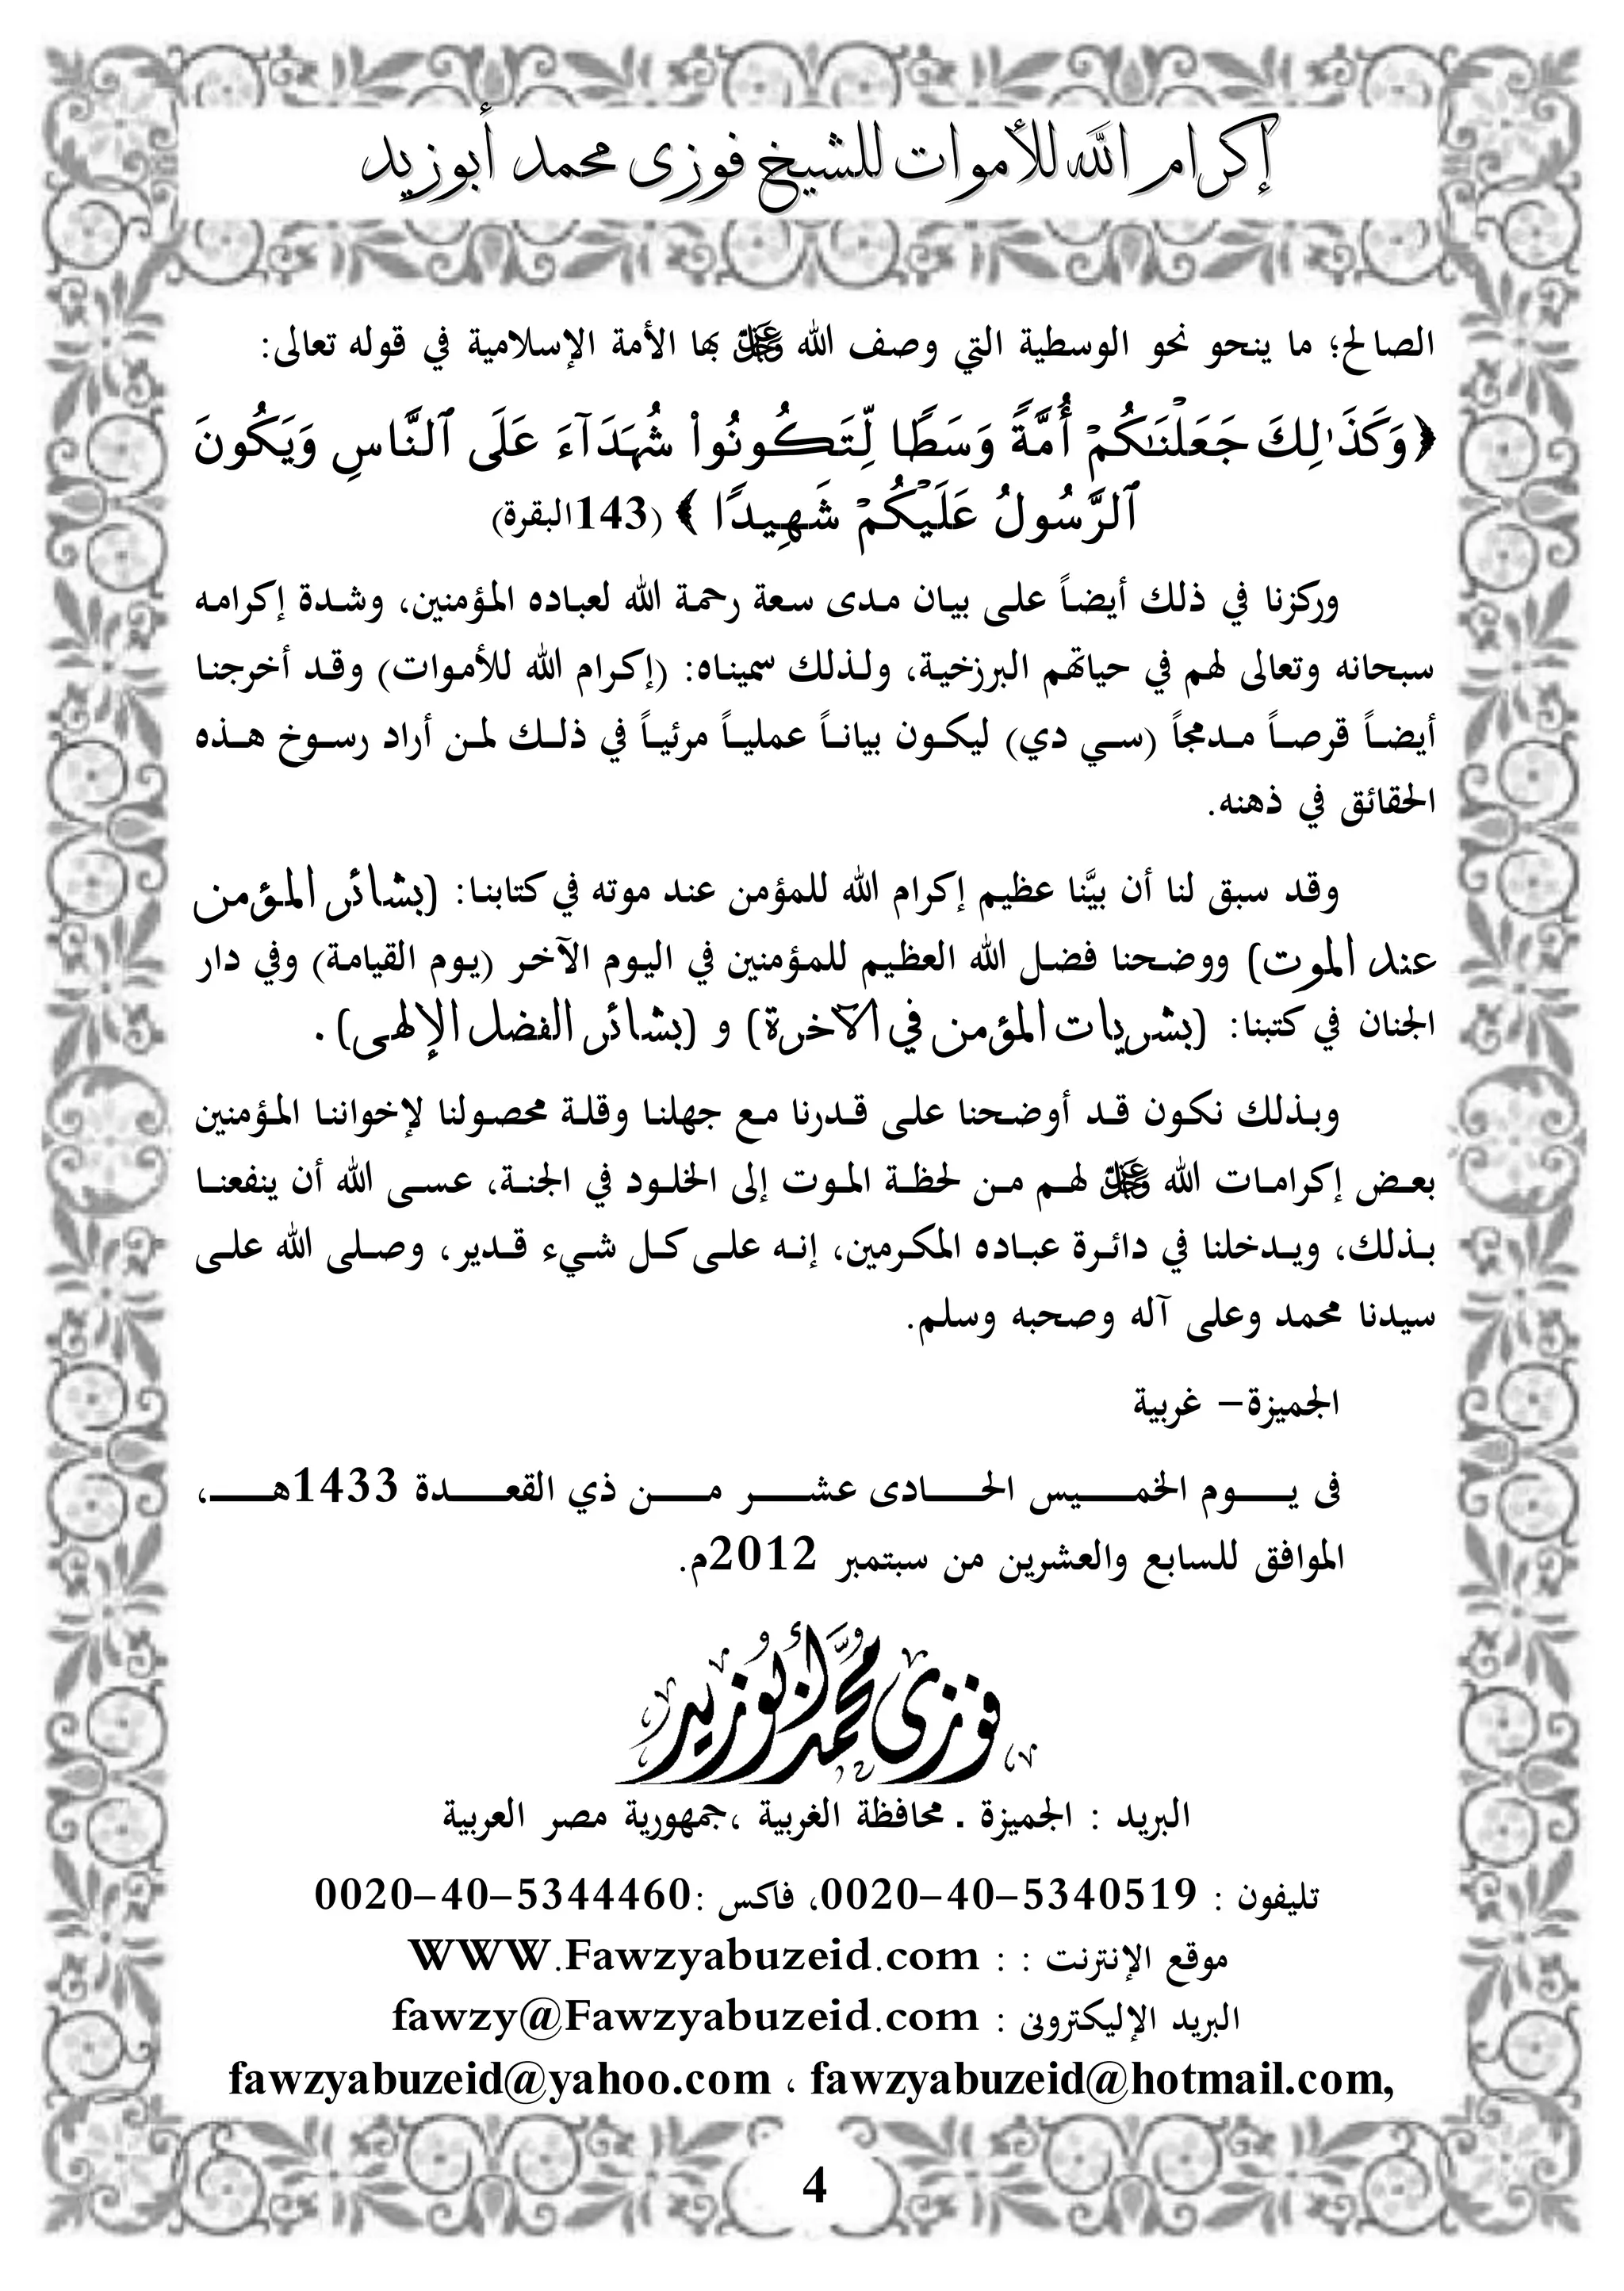 إكرام الله للأموات للشيخ فوزى محمد أبوزيد
الصالح؛ ما ينحو نحو الوسطية التي وصف الله ﷿ بها الأمة الإسلامية في قوله تعالى:
﴿وَكَذَٰلِكَ جَعَلْنَٰكُمْ أُمَّةً وَسَطًا لِّتَكُونُوا۟ شُهَدَآءَ عَلَى ٱلنَّاسِ وَيَكُونَ
ٱلرَّسُولُ عَلَيْكُمْ شَهِيدًا ﴾ (143البقرة)
وركزنا في ذلك أيضاً على بيان مدى سعة رحمة الله لعباده المؤمنين، وشدة إكرامه
سبحانه وتعالى لهم في حياتهم البرزخية، ولذلك سميناه: (إكرام الله للأموات) وقد أخرجنا
أيضاً قرصاً مدمجاً (سي دي) ليكون بياناً عملياً مرئياً في ذلك لمن أراد رسوخ هذه
الحقائق في ذهنه.
وقد سبق لنا أن بيَّنا عظيم إكرام الله للمؤمن عند موته في كتابنا: (بشائر المؤمن
عند الموت) ووضحنا فضل الله العظيم للمؤمنين في اليوم الآخر (يوم القيامة) وفي دار
الجنان في كتبنا: (بشريات المؤمن في الآخرة) و (بشائر الفضل الإلهى) .
وبذلك نكون قد أوضحنا على قدرنا مع جهلنا وقلة محصولنا لإخواننا المؤمنين
بعض إكرامات الله ﷿ لهم من لحظة الموت إلى الخلود في الجنة، عسى الله أن ينفعنا
بذلك، ويدخلنا في دائرة عباده المكرمين، إنه على كل شيء قدير، وصلى الله على
سيدنا محمد وعلى آله وصحبه وسلم.
الجميزة- غربية
فى يوم الخميس الحادى عشر من ذي القعدة 1433هـ،
الموافق للسابع والعشرين من سبتمبر 2012م.
فوزى محمد أبوزيد
البريد : الجميزة . محافظة الغربية ،جمهورية مصر العربية
تليفون : 0020-40-5340519، فاكس :0020-40-5344460
موقع الإنترنت : : WWW.Fawzyabuzeid.com
البريد الإليكترونى : fawzy@Fawzyabuzeid.com
fawzyabuzeid@yahoo.com ، fawzyabuzeid@hotmail.com,
4